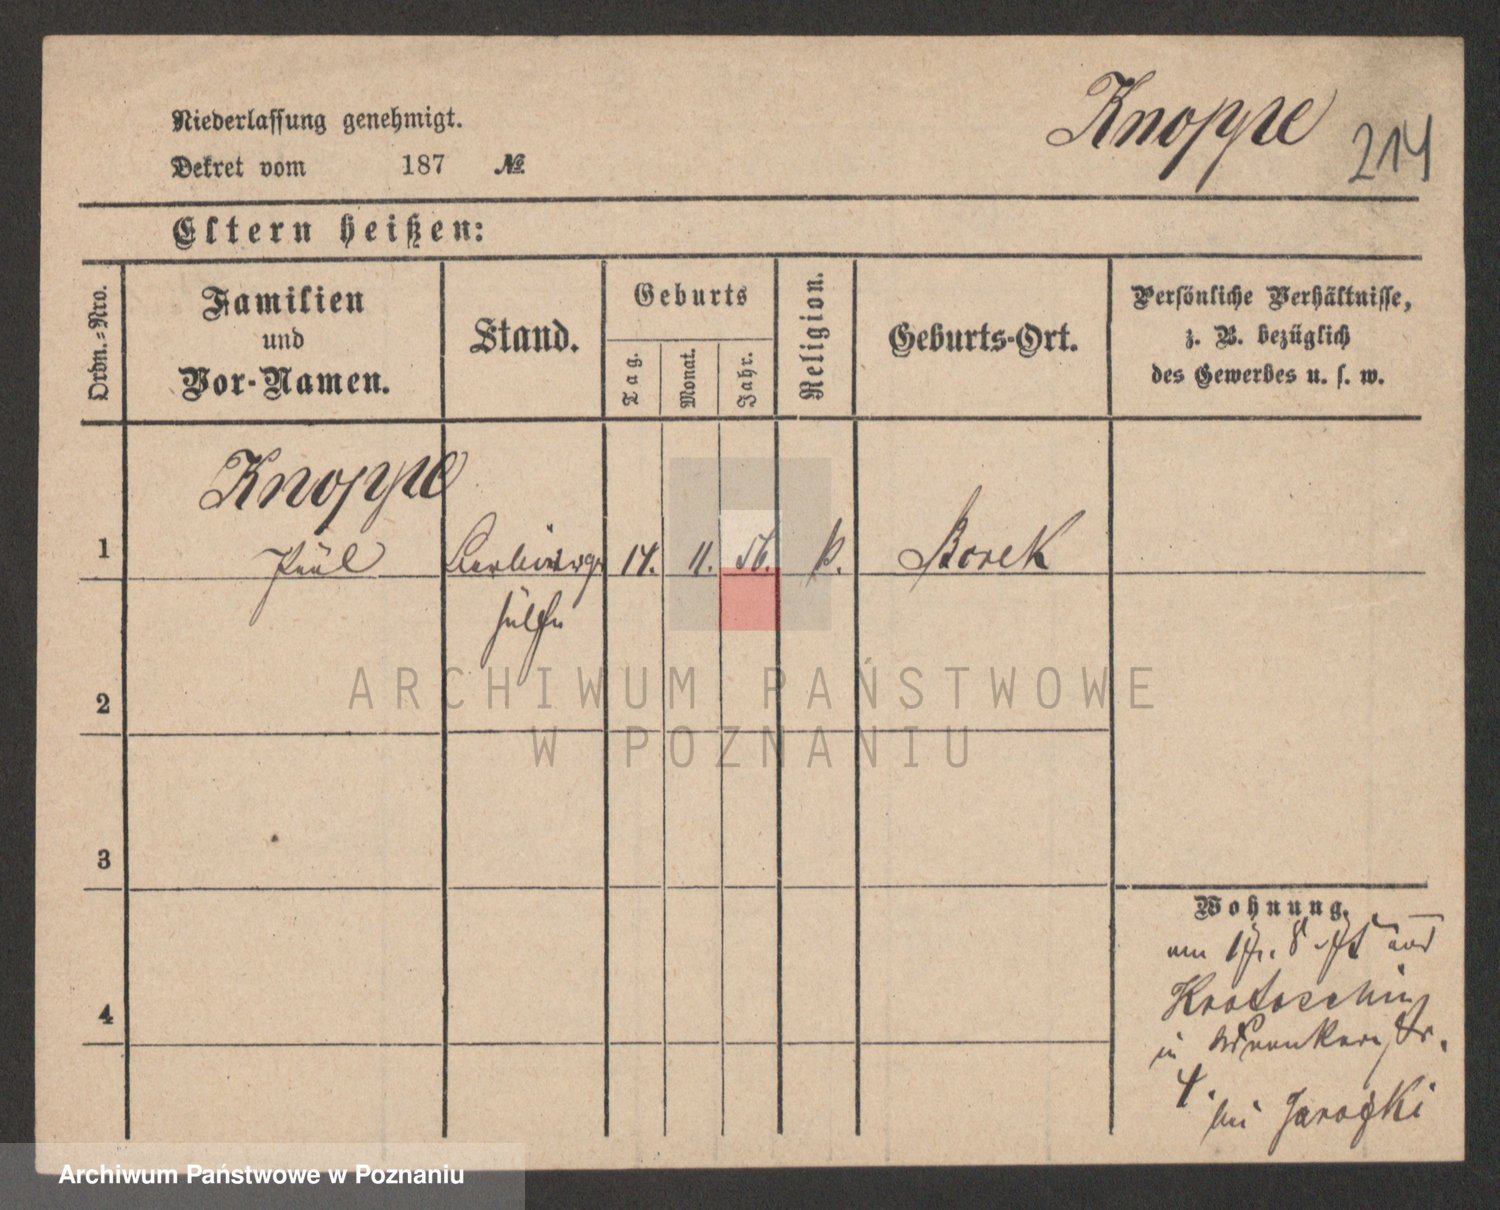 Knoppe
214
Niederlassung genehmigt.
Dekret vom 187 №
Eltern heißen:
Ordn.-Nro.
Familien
und
Vor-Namen.
Stand.
Geburts
Tag.
Monat.
Jahr.
Religion.
Geburts-Ort.
Persönliche Verhältnisse,
z. B. bezüglich
des Gewerbes u. s. w.
Knoppe
1 Paul 14. 11. 56. k. Borek
2
3
4
Wohnung.
am 8
Krotoschin
in
4.
bei
ARCHIWUM PAŃSTWOWE
W POZNANIU
Archiwum Państwowe w Poznaniu